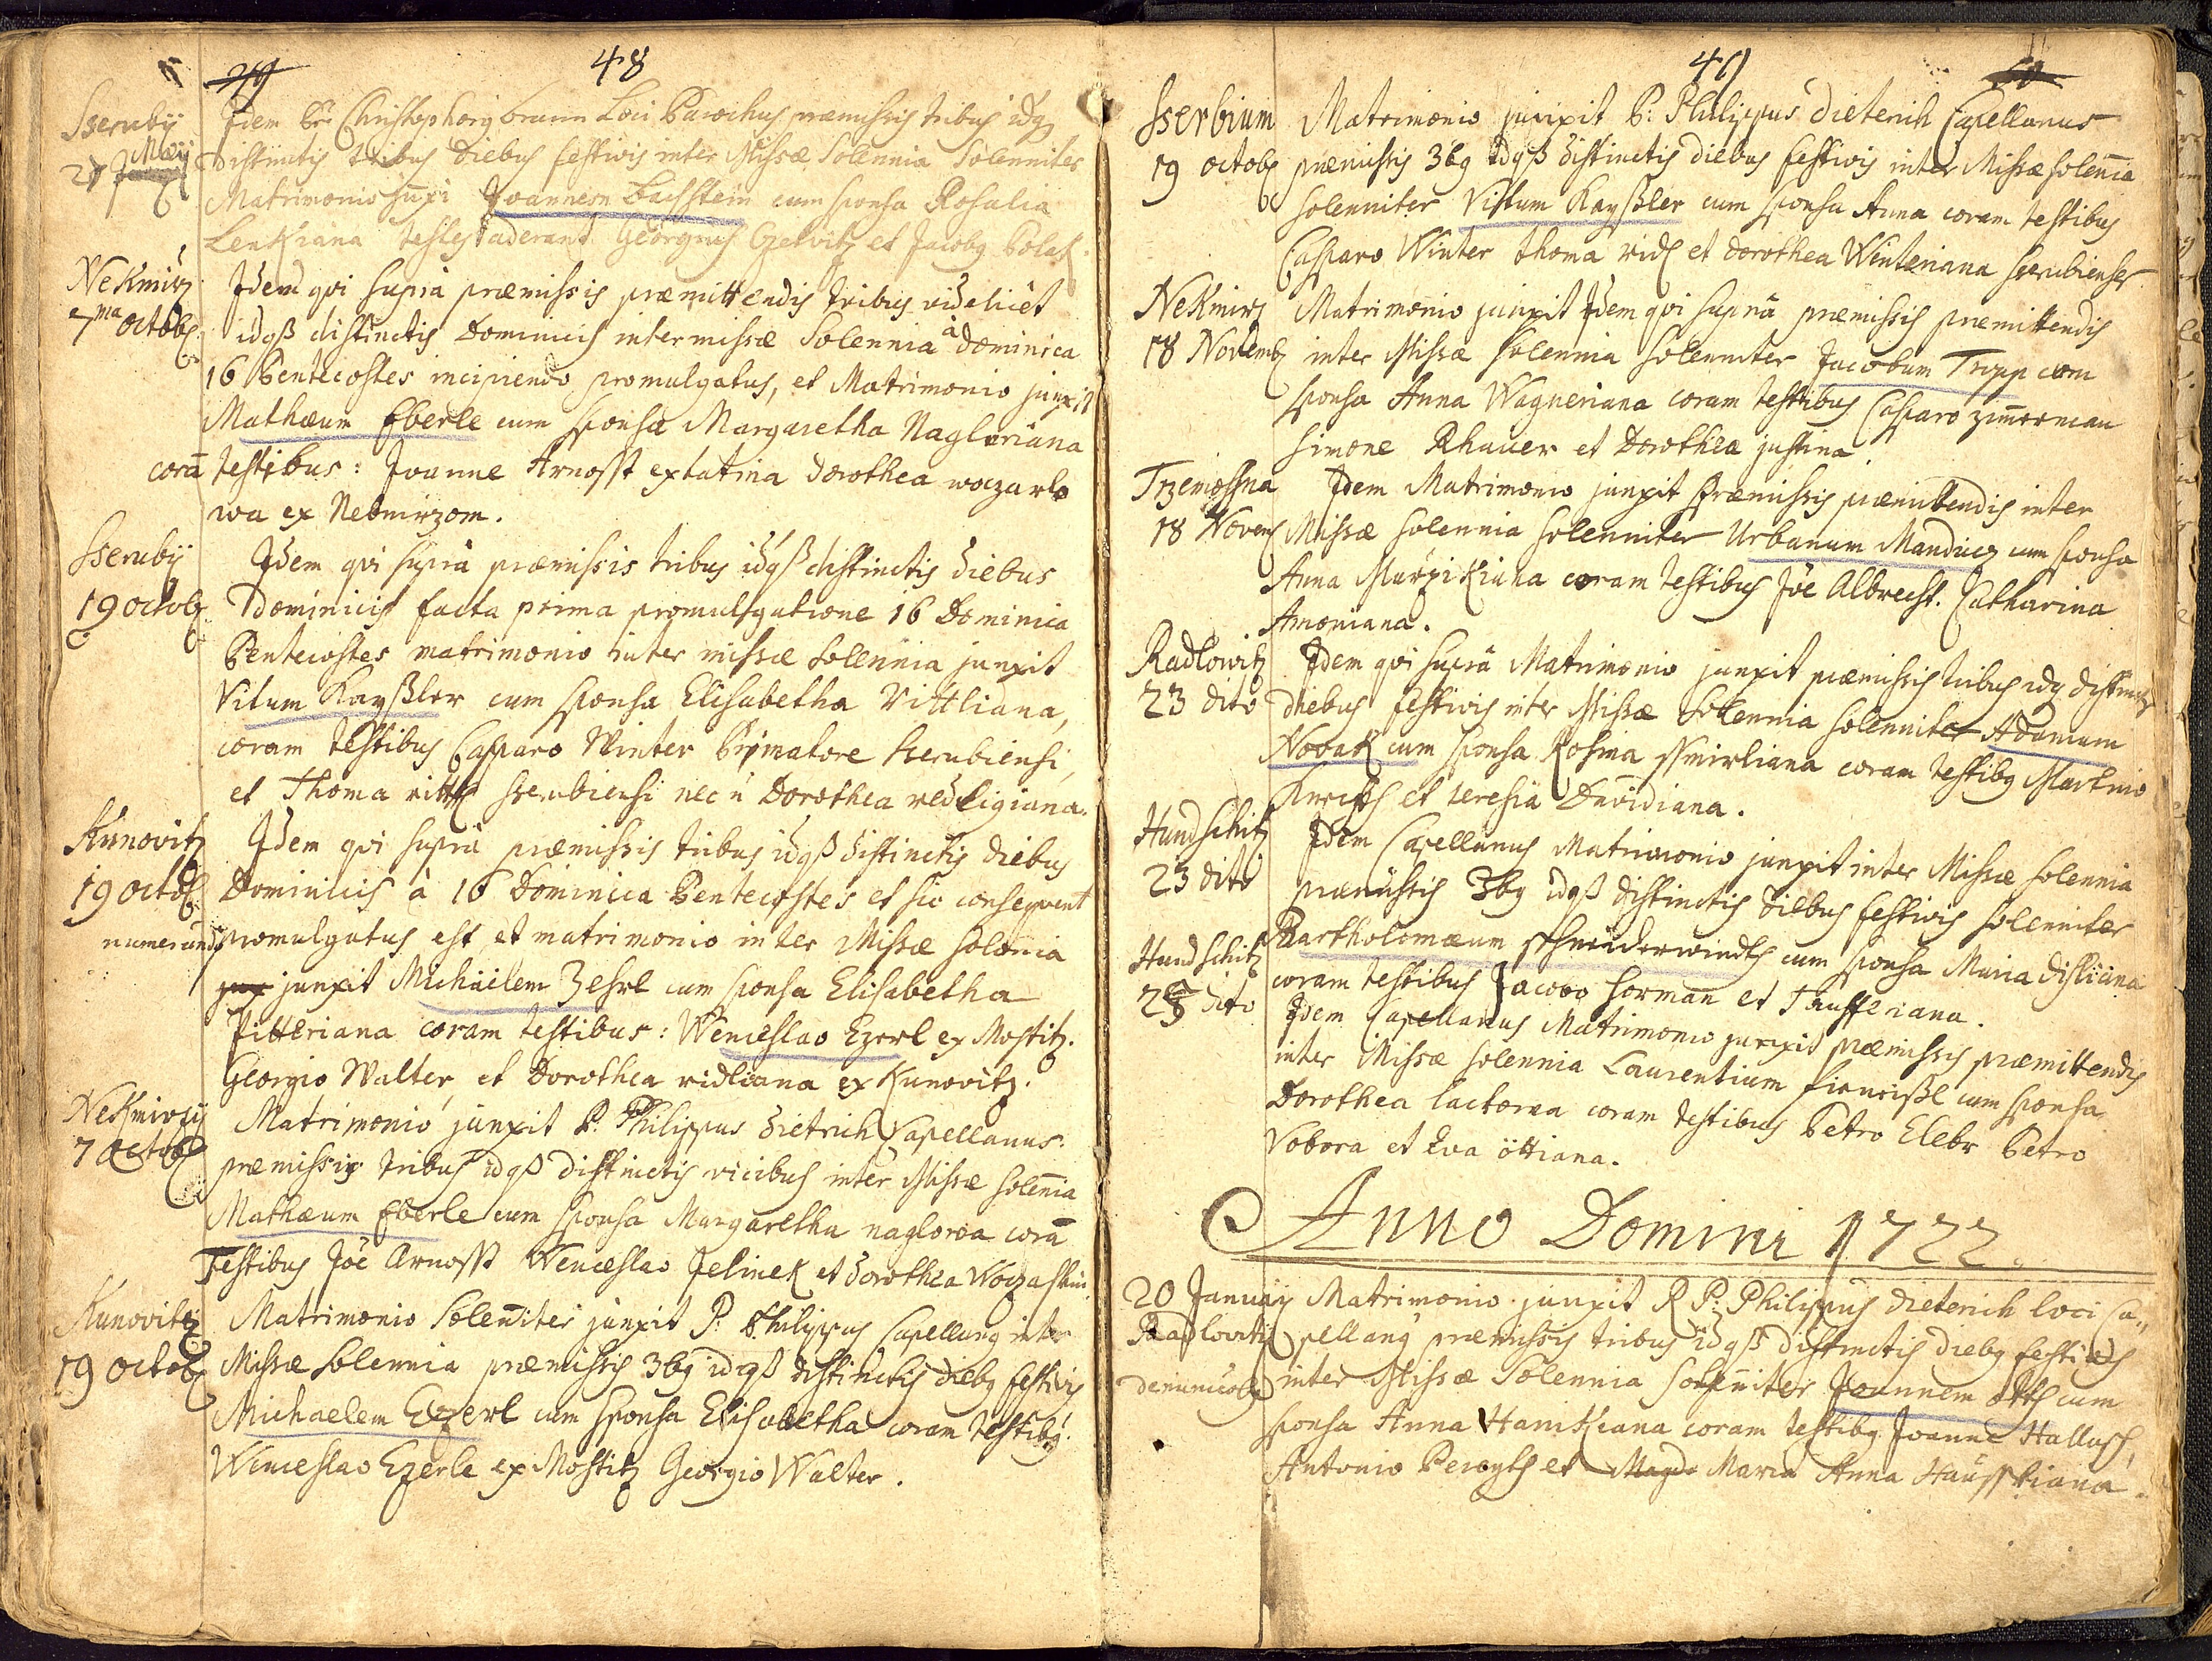 48
Sseruby Idem P. Christophorg Loci Parochus præmissis tribus idq
Maij distinctis tribus diebus festivis inter Missæ Solennia Solenniter
27 Matrimonio junxi Joannem Bachstein cum sponsa Rosalia
Lenkiana testes aderant Georgius et Jacobg Polak.
NeKmirz Idem qvi supra præmissis præmittendis tribus videlicet
7ma octobr. idqß distinctis Dominicis inter missæ Solennia à Dominica
16 Pentecostes incipiendo promulgatus, et Matrimonio junxit
Mathæum Eberle cum sponsa Margaretha Nagleriana
corā testibus: Joanne Arnosst ex tatina Dorothea woczarlo
wa ex Nekmirzom.
Sseruby Idem qvi supra præmissis tribus idqß distinctis diebus
19 octob Dominicis facta prima promulgatione 16 Dominica
Pentecostes matrimonio inter missæ Solennia junxit
Vitum Kayßler cum sponsa Elisabetha Vittliana,
coram testibus Casparo Winter Primatore Sserubiensi,
et Thoma Sserubiensi nec ñ Dorothea
Kunovitz Idem qvi supra præmissis tribus idqß distinctis diebus
19 octob Dominicis à 16 Dominica Pentecostes et sic consequent
numerand promulgatus est et matrimonio inter Missæ solenia
jux junxit Michäelem Zehrl cum sponsa Elisabetha
Pitteriana coram testibus: Wenceslao Ezerl ex Mostitz.
Georgio Walter, et Dorothea ridliana ex Kunovitz.
NeKmirzij Matrimonio junxit P. Philippus Dietrich Capellanus.
7 octob præmissis tribus idqß distinctis vicibus inter Missæ solēnia
Mathæum Eberle cum sponsa Margaretha naglowa corā
Testibus Jōe Arnosst Wenceslao Jelinek et Dorothea
Kunovitz Matrimonio Solēniter junxit P. Philippus Capellang inter
19 octob Missæ Solennia præmissis 3bg idqß distinctis diebg festivis
Michaelem Ezerl cum sponsa Elisabetha coram testibg
Wenceslao Ezerle ex Mostitz Georgio Walter.
49
Sserbium Matrimonio junxit P: Philippus Dieterich Capellanus
19 octob præmissis 3bg idqß distinctis diebus festivis inter Missæ solēnia
solenniter Vittum Kayßler cum sponsa Anna coram testibus
Casparo Winter thoma et Dorothea Winteriana Sserubienses
NeKmirz Matrimonio junxit Idem qvi supra præmissis præmittendis
18 Novemb inter Missæ solennia solenniter Jacobum Tropp cum
sponsa Anna Wagneriana coram testibus Casparo Zimmerman
Simone Rhauer et Dorothea justina
Trzemossna Idem Matrimonio junxit præmissis præmittendis inter
18 Novem Missæ solennia solenniter Urbanum Mandincz cum sponsa
Anna coram testibus Jōe Albrecht. Catharina
Amoniana.
Radlowitz Idem qvi supra Matrimonio junxit præmissis tribus idq distinctis
23 dito diebus festivis inter Missæ Solennia solenniter Adamum
Novak cum sponsa Rosina coram testibg Martino
et teresia Davidiana.
Hundschitz Idem Capellanus Matrimonio junxit inter Missæ solennia
23 dito præmissis 3bg idqß distinctis diebus festivis solenniter
Bartholomæum cum sponsa Maria
Hundschitz coram testibus Jacobo Horman et Taufferiana.
25 dito Idem Capellanus Matrimonio junxit præmissis præmittendis
inter Missæ solennia Laurentium cum sponsa
Dorothea coram testibus Petro Petro
Vobora et Eva öttiana.
Anno Domini 1722.
20 Januarij Matrimonio junxit R P: Philippus Dieterich loci Ca„
Radlovitij pellang præmissis tribus idqß distinctis diebg festivis
inter Missæ Solennia solenniter Joannem otth cum
sponsa Anna Hanikiana coram testibg Joanne Hallusch,
Antonio et Magd Maria Anna